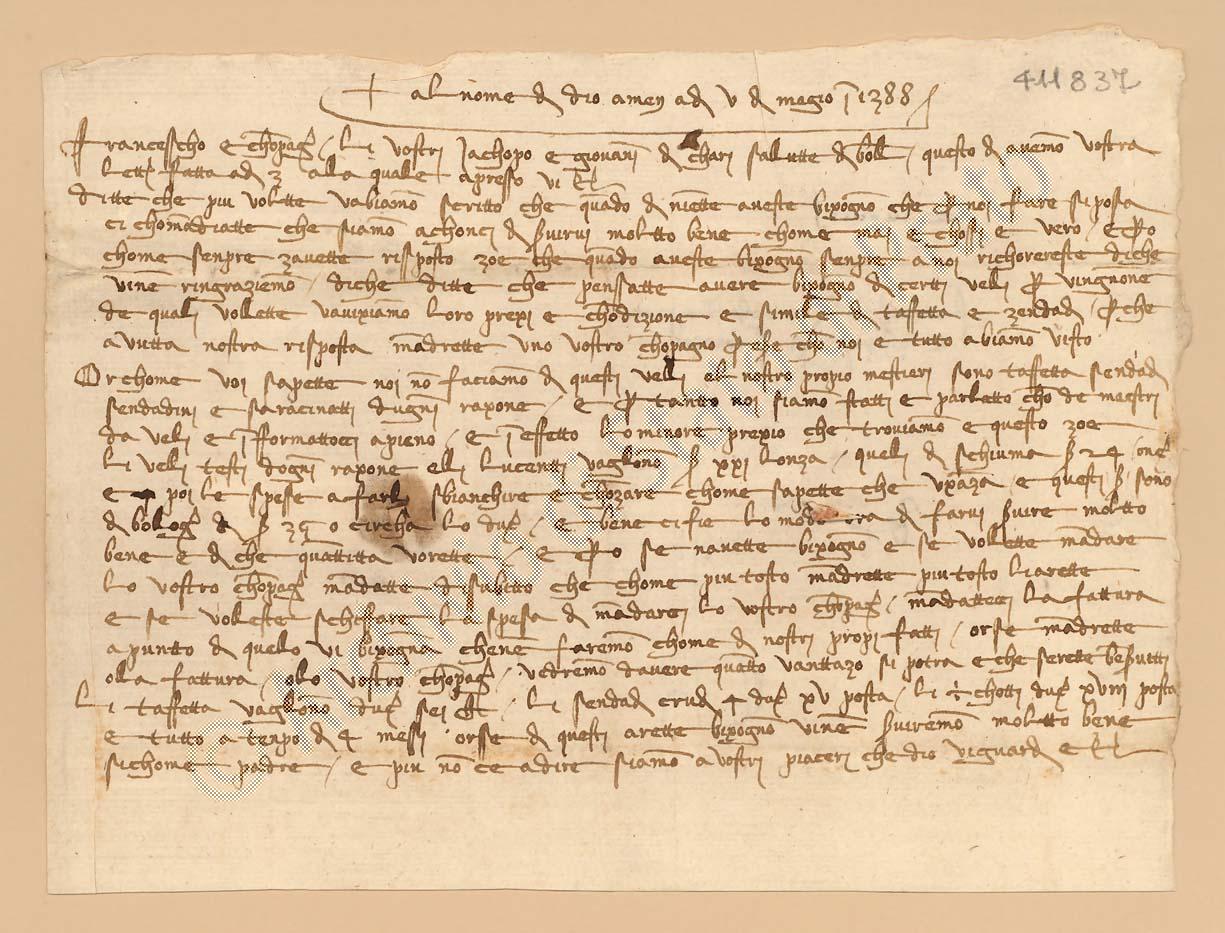 411837
+ al nome di dio amen adi v di magio 1388
Francescho e chopag li vostri Jachopo e giovani di chari salutte di boll questo di avemo vostra
lettr fatta adi 3 alla qualle apresso vi
ditte che piu voltte vabiamo scritto che quado di niente aveste bixogno che per noi fare si possa
ci chomadiatte che siamo achonci di servirvi moltto bene chome mai e chossi e vero e pero
chome senpre zavette rissposto zoe che quado aveste bixogno senpre a noi richorereste diche
vine ringraziemo diche ditte che penssatte avere bixogno di certti velli per vingnone
de quali vollette vavixiamo loro prexi e chodizione e simile di taffetta e zendadi perche
avutta nostra risposta madrette uno vostro chopagno per esse cho noi e tutto abiamo visto
Or chome voi sapette noi no faciamo di questi velli el nostro propio mestieri sono taffetta sendadi
sendadini e saracinatti dugni raxone e per tantto noi siamo statti e parlatto cho de maestri
da veli e iformattoci apieno e i effetto lo minore prexio che troviamo e questo zoe
li veli testi dogni raxone elli lucentti vagliono s xxi lonza queli di schiuma s 24 one
e poi le spesse a farli sbianchire e chozare chome sapette che uxaza e questi s sono
di bolog di s 35 o circha lo duc e bene ci fie lo modo ora di farvi servire moltto
bene e di che quattitta vorette e pero se navette bixogno e se vollette madare
lo vostro chopag madatte di subitto che chome piu tosto madrette piu tosto liarette
e se voleste schiffare la spesa di madarci lo vostro chopag madatteci la fattura
apuntto di quello vi bixogna chene faremo chome di nostri propi fatti or se madrette
olla fattura olo vostro chopag vedremo davere quatto vanttazo si potra e che serette beservitti
li taffetta vagliono duc sei li sendadi crudi 4 duc xv posta li chotti duc xviii posta
e tutto a tenpo di 4 messi orsse di questi arette bixogno vine serviremo moltto bene
sichome padre e piu no ce adire siamo a vostri piaceri che dio vi guardi e